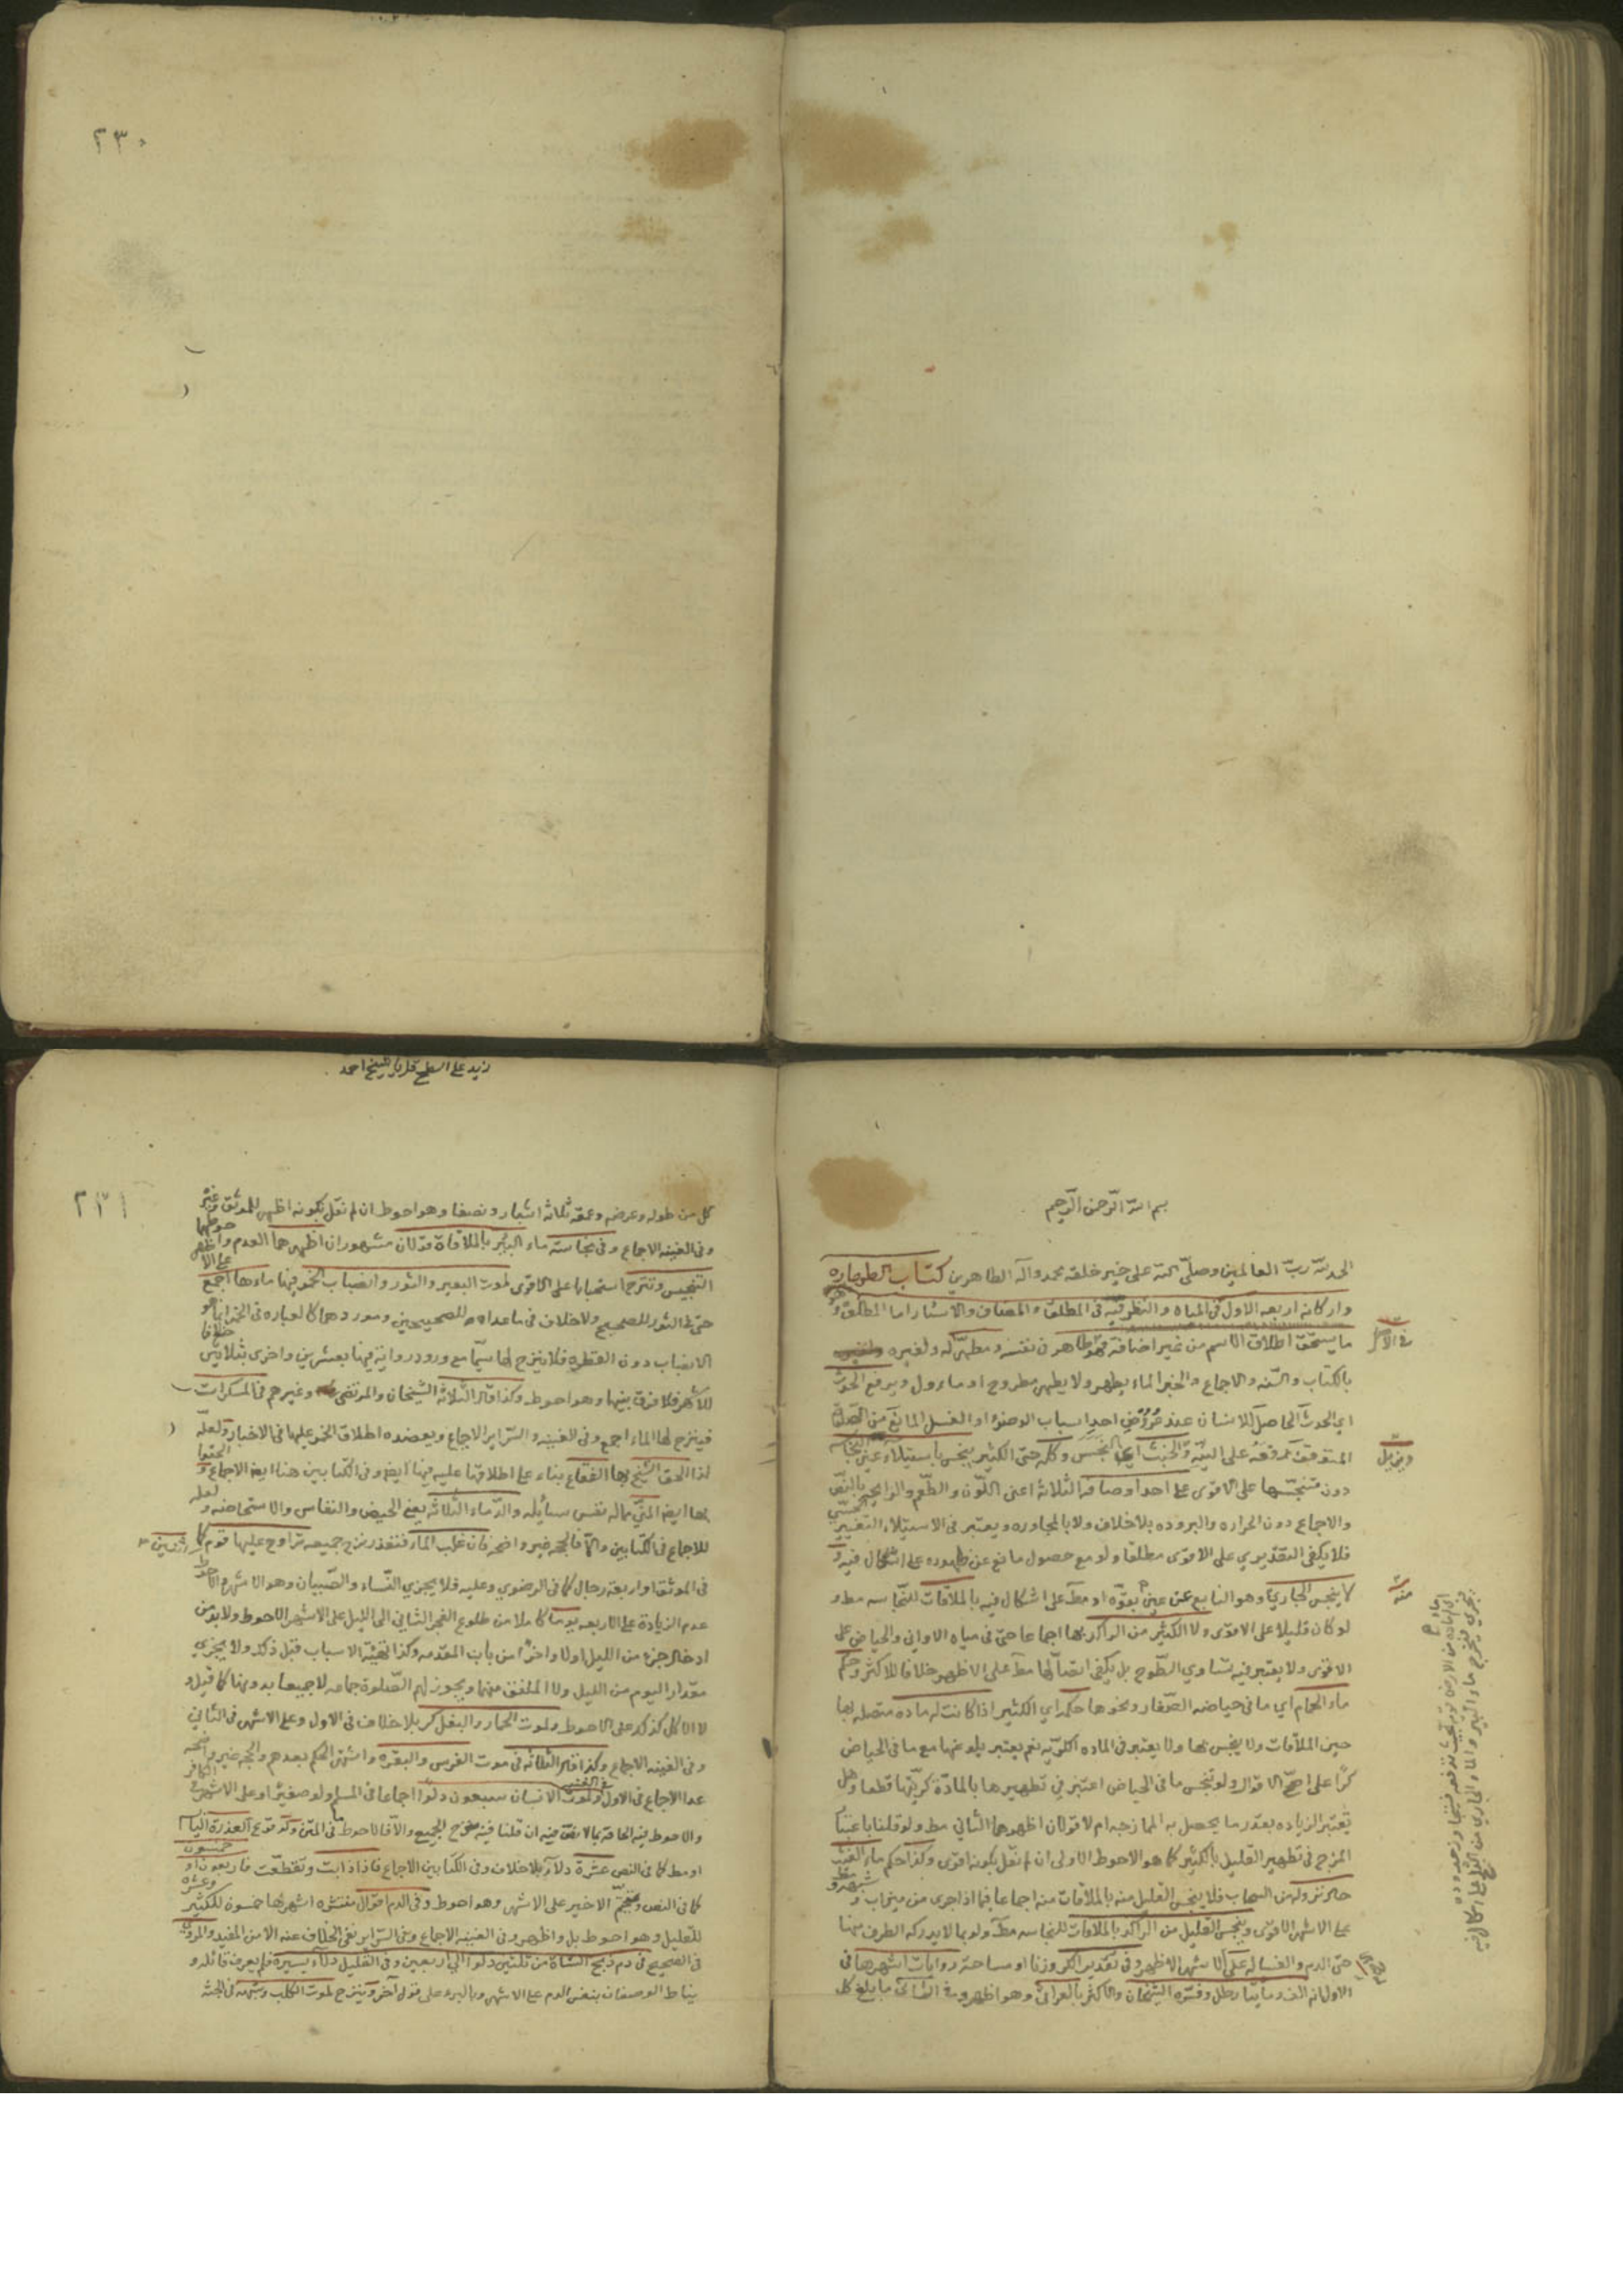 ٢٣٠
زيد على السطح
بسم الله الرحمن الرحيم
الحمد لله رب العالمين وصلى الله على خير خلقه محمد وآله الطاهرين كتاب الطهارة
واركانه اربعة الاول في المياه والنظر فيه في المطلق والمضاف والاسئار اما المطلق فهو
ما يستحق اطلاق الاسم من غير اضافة فهو طاهر في نفسه ومطهر له ولغيره
بالكتاب والسنه والاجماع والخبر الماء يطهر ولا يطهر مطروح او مأول ويرفع الحدث
اي الحدث الحاصل للانسان عند عروض احد اسباب الوضوء او الغسل المانع من الصلوة
المتوقف رفعه على النية والخبث اي النجس وكله حتى الكثير ينجس باستيلاء عين النجاسه
دون متنجسها على الاقوى على احد اوصافه الثلاثة اعنى اللون والطعم والرايحه بالنص
والاجماع دون الحراره والبروده بلاخلاف ولا بالمجاوره ويعتبر في الاستيلاء التغيير الحسي
فلا يكفى التقديري على الاقوى مطلقا ولو مع حصول مانع عن ظهوره على اشكال فيه و
لا ينجس الجاري وهو النابع عن عين بقوه او مط على اشكال فيه بالملاقات للنجاسه مط و
لو كان قليلا على الاقوى ولا الكثير من الراكد بها اجماعا حتى في مياه الاواني والحياض على
الاقوى ولا يعتبر فيه تساوي السطوح بل يكفى اتصالها مط على الاظهر خلافا للاكثر وحكم
ماء الحمام اي ما في حياضه الصغار ونحوها حكمه اي الكثير اذا كانت له ماده متصله بها
حين الملاقات ولا ينجس بها ولا يعتبر في الماده الكريه نعم يعتبر بلوغها مع ما في الحياض
كرا على اصح الاقوال ولو تنجس ما في الحياض اعتبر في تطهيرها بالمادة كريتها قطعا وهل
يعتبر الزياده بقدر ما يحصل به الممازجه ام لا قولان اظهرهما الثاني مط ولو قلنا باعتبار
المزج في تطهير القليل بالكثير كما هو الاحوط الاولى ان لم نقل بكونه اقوى وكذا حكم ماء الغيث
حال نزوله من السحاب فلا ينجس القليل منه بالملاقات منه اجماعا فيما اذا جرى من ميزاب و
على الاشهر الاقوى وينجس القليل من الراكد بالملاقات للنجاسه مط ولو بما لا يدركه الطرف منها
حتى الدم والغساله على الاشهر الاظهر وفي تقدير الكر وزنا او مساحة روايات اشهرها في
الاول انه الف ومايتا رطل وفسره الشيخان والاكثر بالعراقي وهو اظهر وفي الثاني ما بلغ كل
منه
٢٣١
كل من طوله وعرضه وعمقه ثلاثة اشبار ونصفا وهو احوط ان لم نقل بكونه اظهر للموثق وغيره
وفي الغنيه الاجماع وفي نجاسة ماء البئر بالملاقاة قولان مشهوران اظهرهما العدم واظهر
التنجيس وننزح استحبابا على الاقوى لموت البعير والثور وانصباب الخمر فيها ماءها اجمع
حتى الثور للصحيح ولاخلاف في ما عداه للصحيحين وموردهما كالعباره في الخمر انما هو
الانصباب دون القطره فلا ينزح لها سيما مع ورود رواية فيها بعشرين واخرى بثلاثين خلافا
للاكثر فلا فرق بينها وهو احوط وكذا قال الثلاثة الشيخان والمرتضى وغيرهم في المسكرات
فينزح لها الماء اجمع وفي الغنيه والسراير الاجماع ويعضده اطلاق الخمر عليها في الاخبار ولعله
لذا الحق الشيخ بها الفقاع بناء على اطلاقها عليه فيها ايضا وفي الكتابين هنا ايضا الاجماع و الحقوا
بها ايضا المني مما له نفس سايله والدماء الثلاثه يعني الحيض والنفاس والاستحاضه ولعله
للاجماع في الكتابين والا فالحجه غير واضحه فان غلب الماء فتعذر نزح جميعه تراوح عليها قوم كل اثنين
في الموثق او اربعة رجال كما في الرضوي وعليه فلا يجزي النساء والصبيان وهو الاشهر الاحوط
عدم الزيادة على الاربعه يوما كاملا من طلوع الفجر الثاني الى الليل على الاشهر الاحوط ولا بد من
ادخال جزء من الليل اولا واخرا من باب المقدمه وكذا تهيئة الاسباب قبل ذلك ولا يجزي
مقدار اليوم من الليل ولا الملفق منهما ويجوز لهم الصلوة جماعه لا جميعا بدونها كما قيل و
لا الاكل كذلك على الاحوط ولموت الحمار والبغل كر بلاخلاف في الاول وعلى الاشهر في الثاني
وفي الغنيه الاجماع وكذا قال الثلاثه في موت الفرس والبقره واشتهر الحكم بعدهم والحجه غير واضحه
عدا الاجماع في الاول ولموت الانسان سبعون دلوا اجماعا في المسلم ولو صغيرا وعلى الاشهر في الكافر
والاحوط فيه الحاقه بما لا نص فيه ان قلنا فيه بنزح الجميع والا فالاحوط ما في المتن ولوقوع العذرة اليابسة
او مط كما في النص عشرة دلاء بلاخلاف وفي الكتابين الاجماع فان ذابت وتقطعت فاربعون او خمسون
كما في النص وتحتم الاخير على الاشهر وهو احوط وفي الدم اقوال منتشره اشهرها خمسون للكثير وعشرة
للقليل وهو احوط بل واظهر وفي الغنيه الاجماع وفي السراير نفي الخلاف عنه الا من المفيد والمروي
في الصحيح في دم ذبح الشاة من ثلثين دلوا الى اربعين وفي القليل دلاء يسيرة ولم يعرف قائله و
يناط الوصفان بنفس الدم على الاشهر وبالبئر على قول آخر وينزح لموت الكلب وشبهه في الجثة